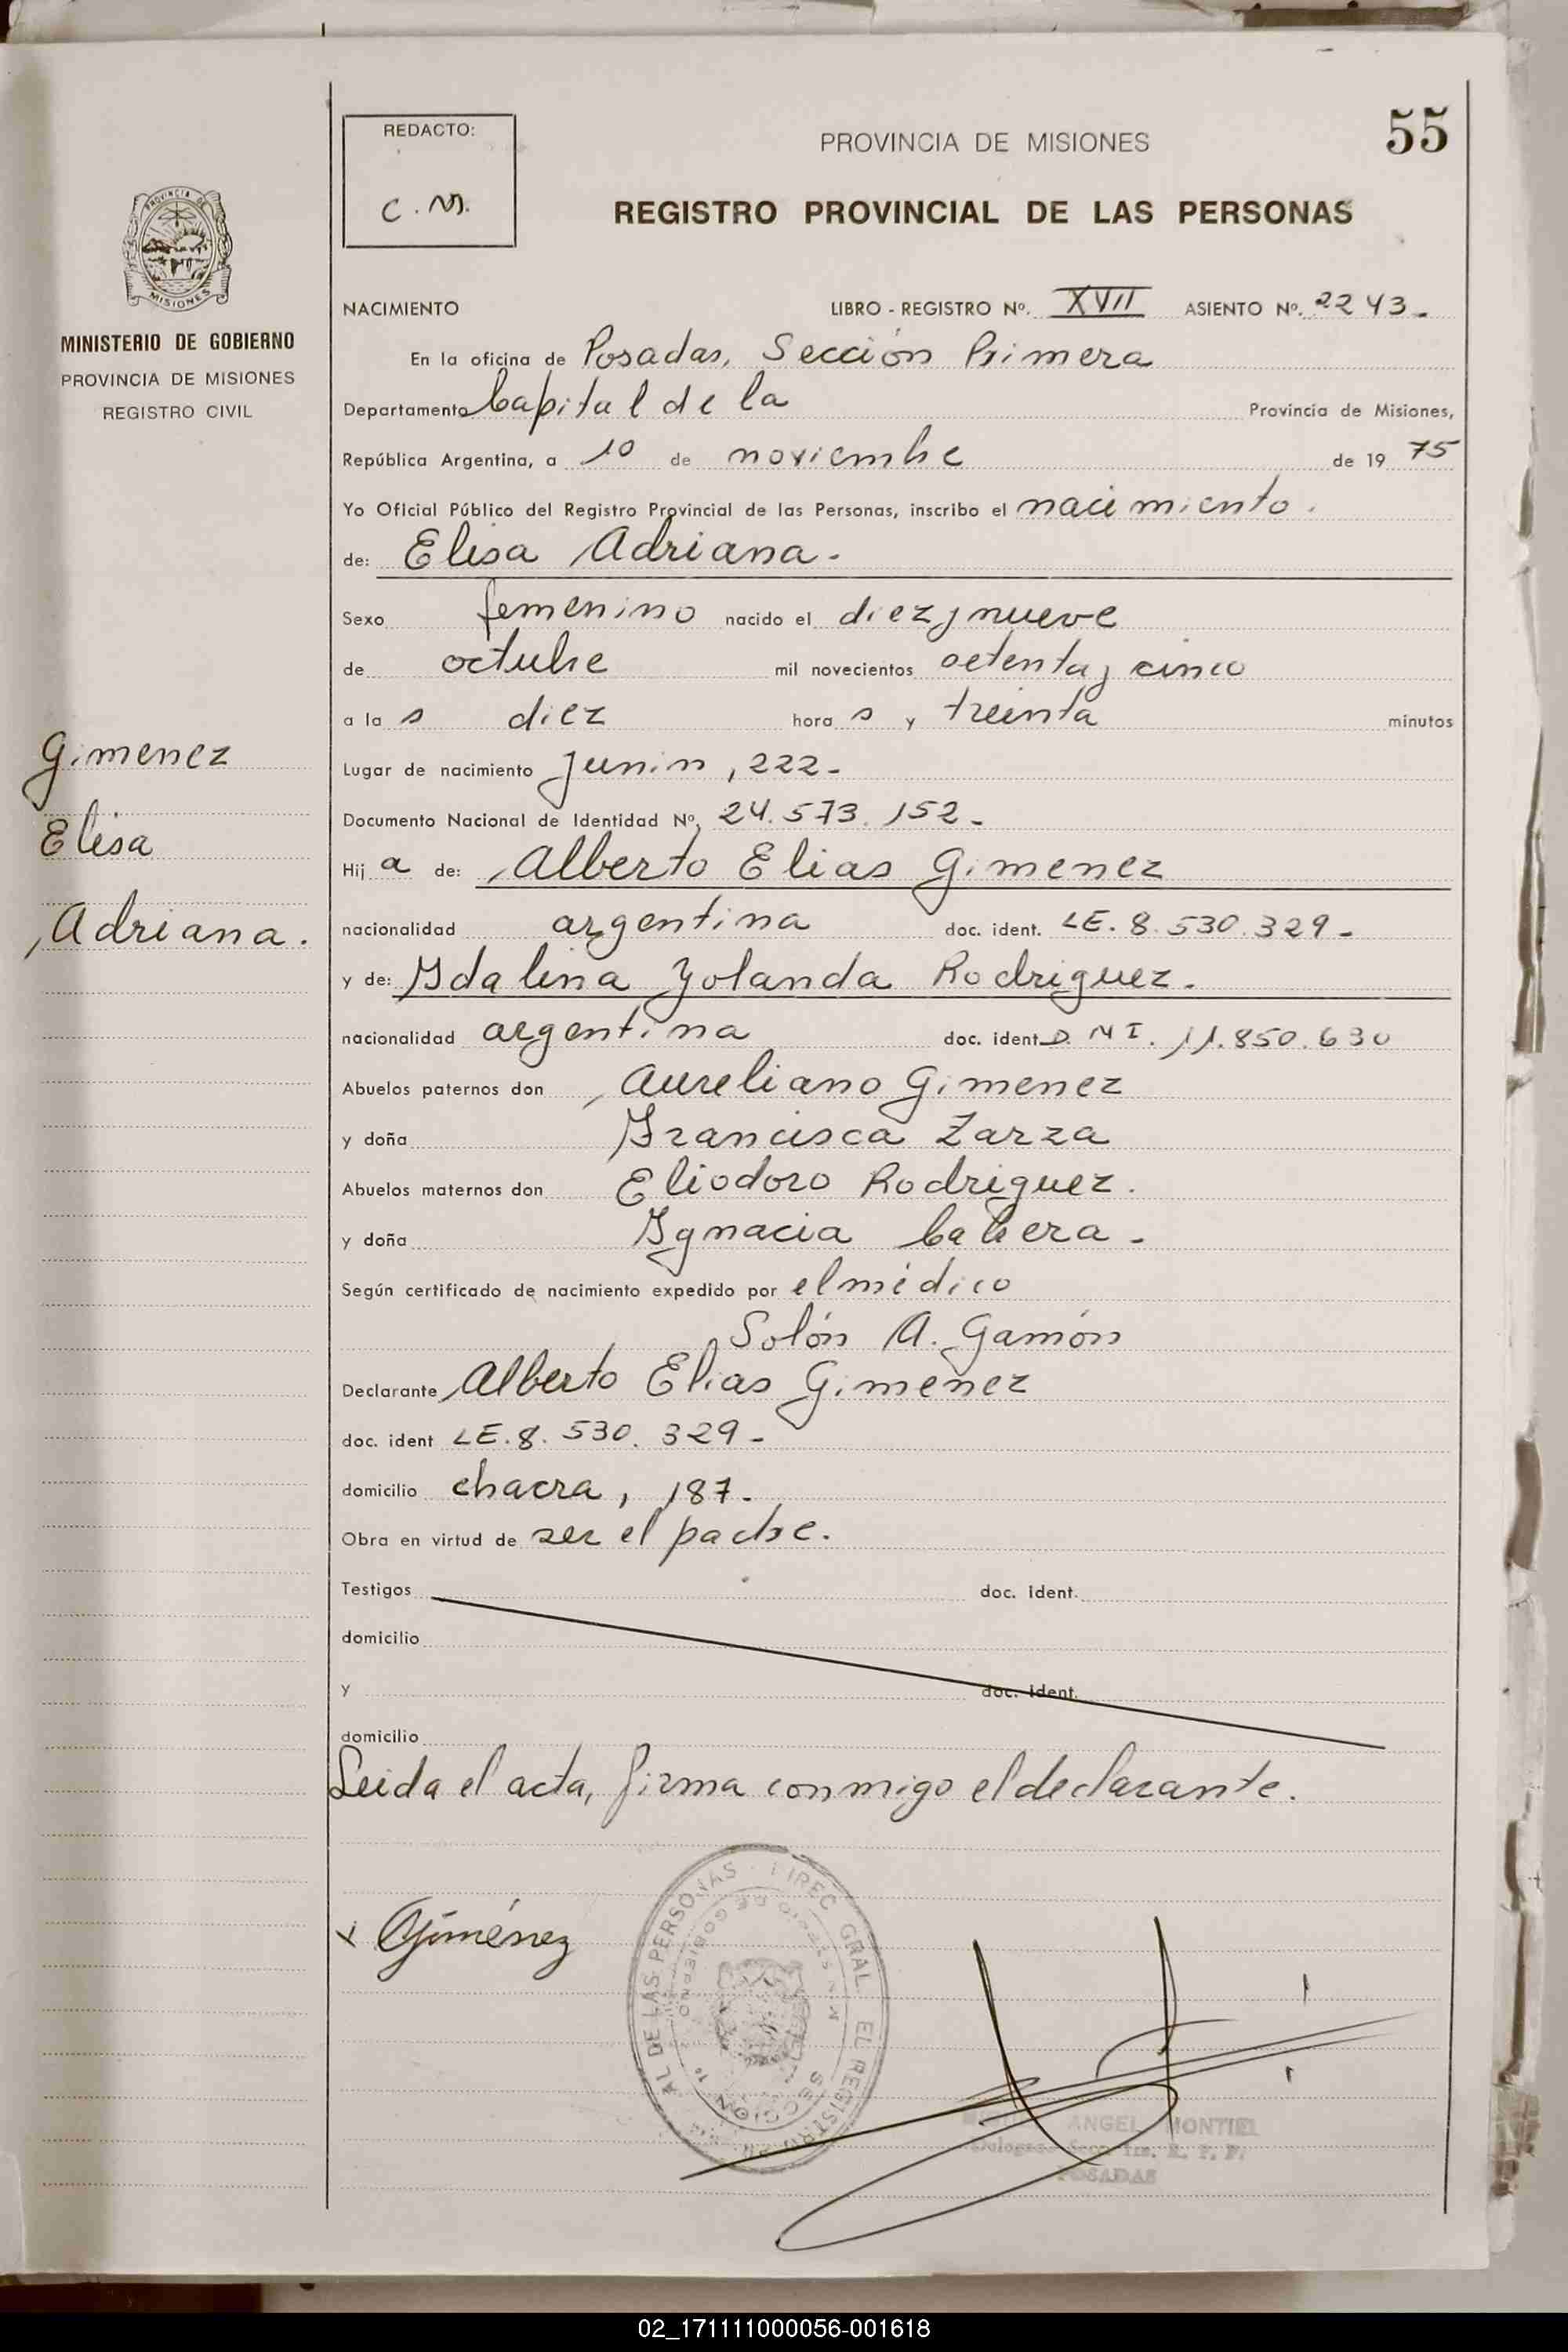 55
REDACTO:
C.M.
PROVINCIA DE MISIONES
REGISTRO PROVINCIAL DE LAS PERSONAS
PROVINCIA DE
MISIONES
MINISTERIO DE GOBIERNO
PROVINCIA DE MISIONES
REGISTRO CIVIL
Gimenez
Elisa
Adriana.
NACIMIENTO LIBRO - REGISTRO Nº. XVII ASIENTO Nº. 2243-
En la oficina de Posadas, Sección Primera
Departamento Capital de la Provincia de Misiones,
República Argentina, a 10 de noviembre de 19 75
Yo Oficial Público del Registro Provincial de las Personas, inscribo el nacimiento.
de: Elisa Adriana-
Sexo femenino nacido el diez y nueve
de octubre mil novecientos setenta y cinco
a la s diez hora s y treinta minutos
Lugar de nacimiento Junin, 222-
Documento Nacional de Identidad Nº. 24.573.152-
Hij a de: Alberto Elias Gimenez
nacionalidad argentina doc. ident. LE. 8.530.329-
y de: Idalina Yolanda Rodriguez-
nacionalidad argentina doc. ident D.N I. 11.850.630
Abuelos paternos don Aureliano Gimenez
y doña Francisca Zarza
Abuelos maternos don Eliodoro Rodriguez.
y doña Ignacia
Según certificado de nacimiento expedido por el médico
Solón A. Gamón
Declarante Alberto Elias Gimenez
doc. ident LE. 8. 530. 329-
domicilio chacra, 187-
Obra en virtud de ser el padre.
Testigos doc. ident.
domicilio
y doc. ident.
domicilio
Leida el acta, firma conmigo el declarante.
x Giménez
AL DE LAS PERSONAS
GRAL EL REGISTRO
SECCION 1ª
ANGEL MONTIEL
POSADAS
02_171111000056-001618